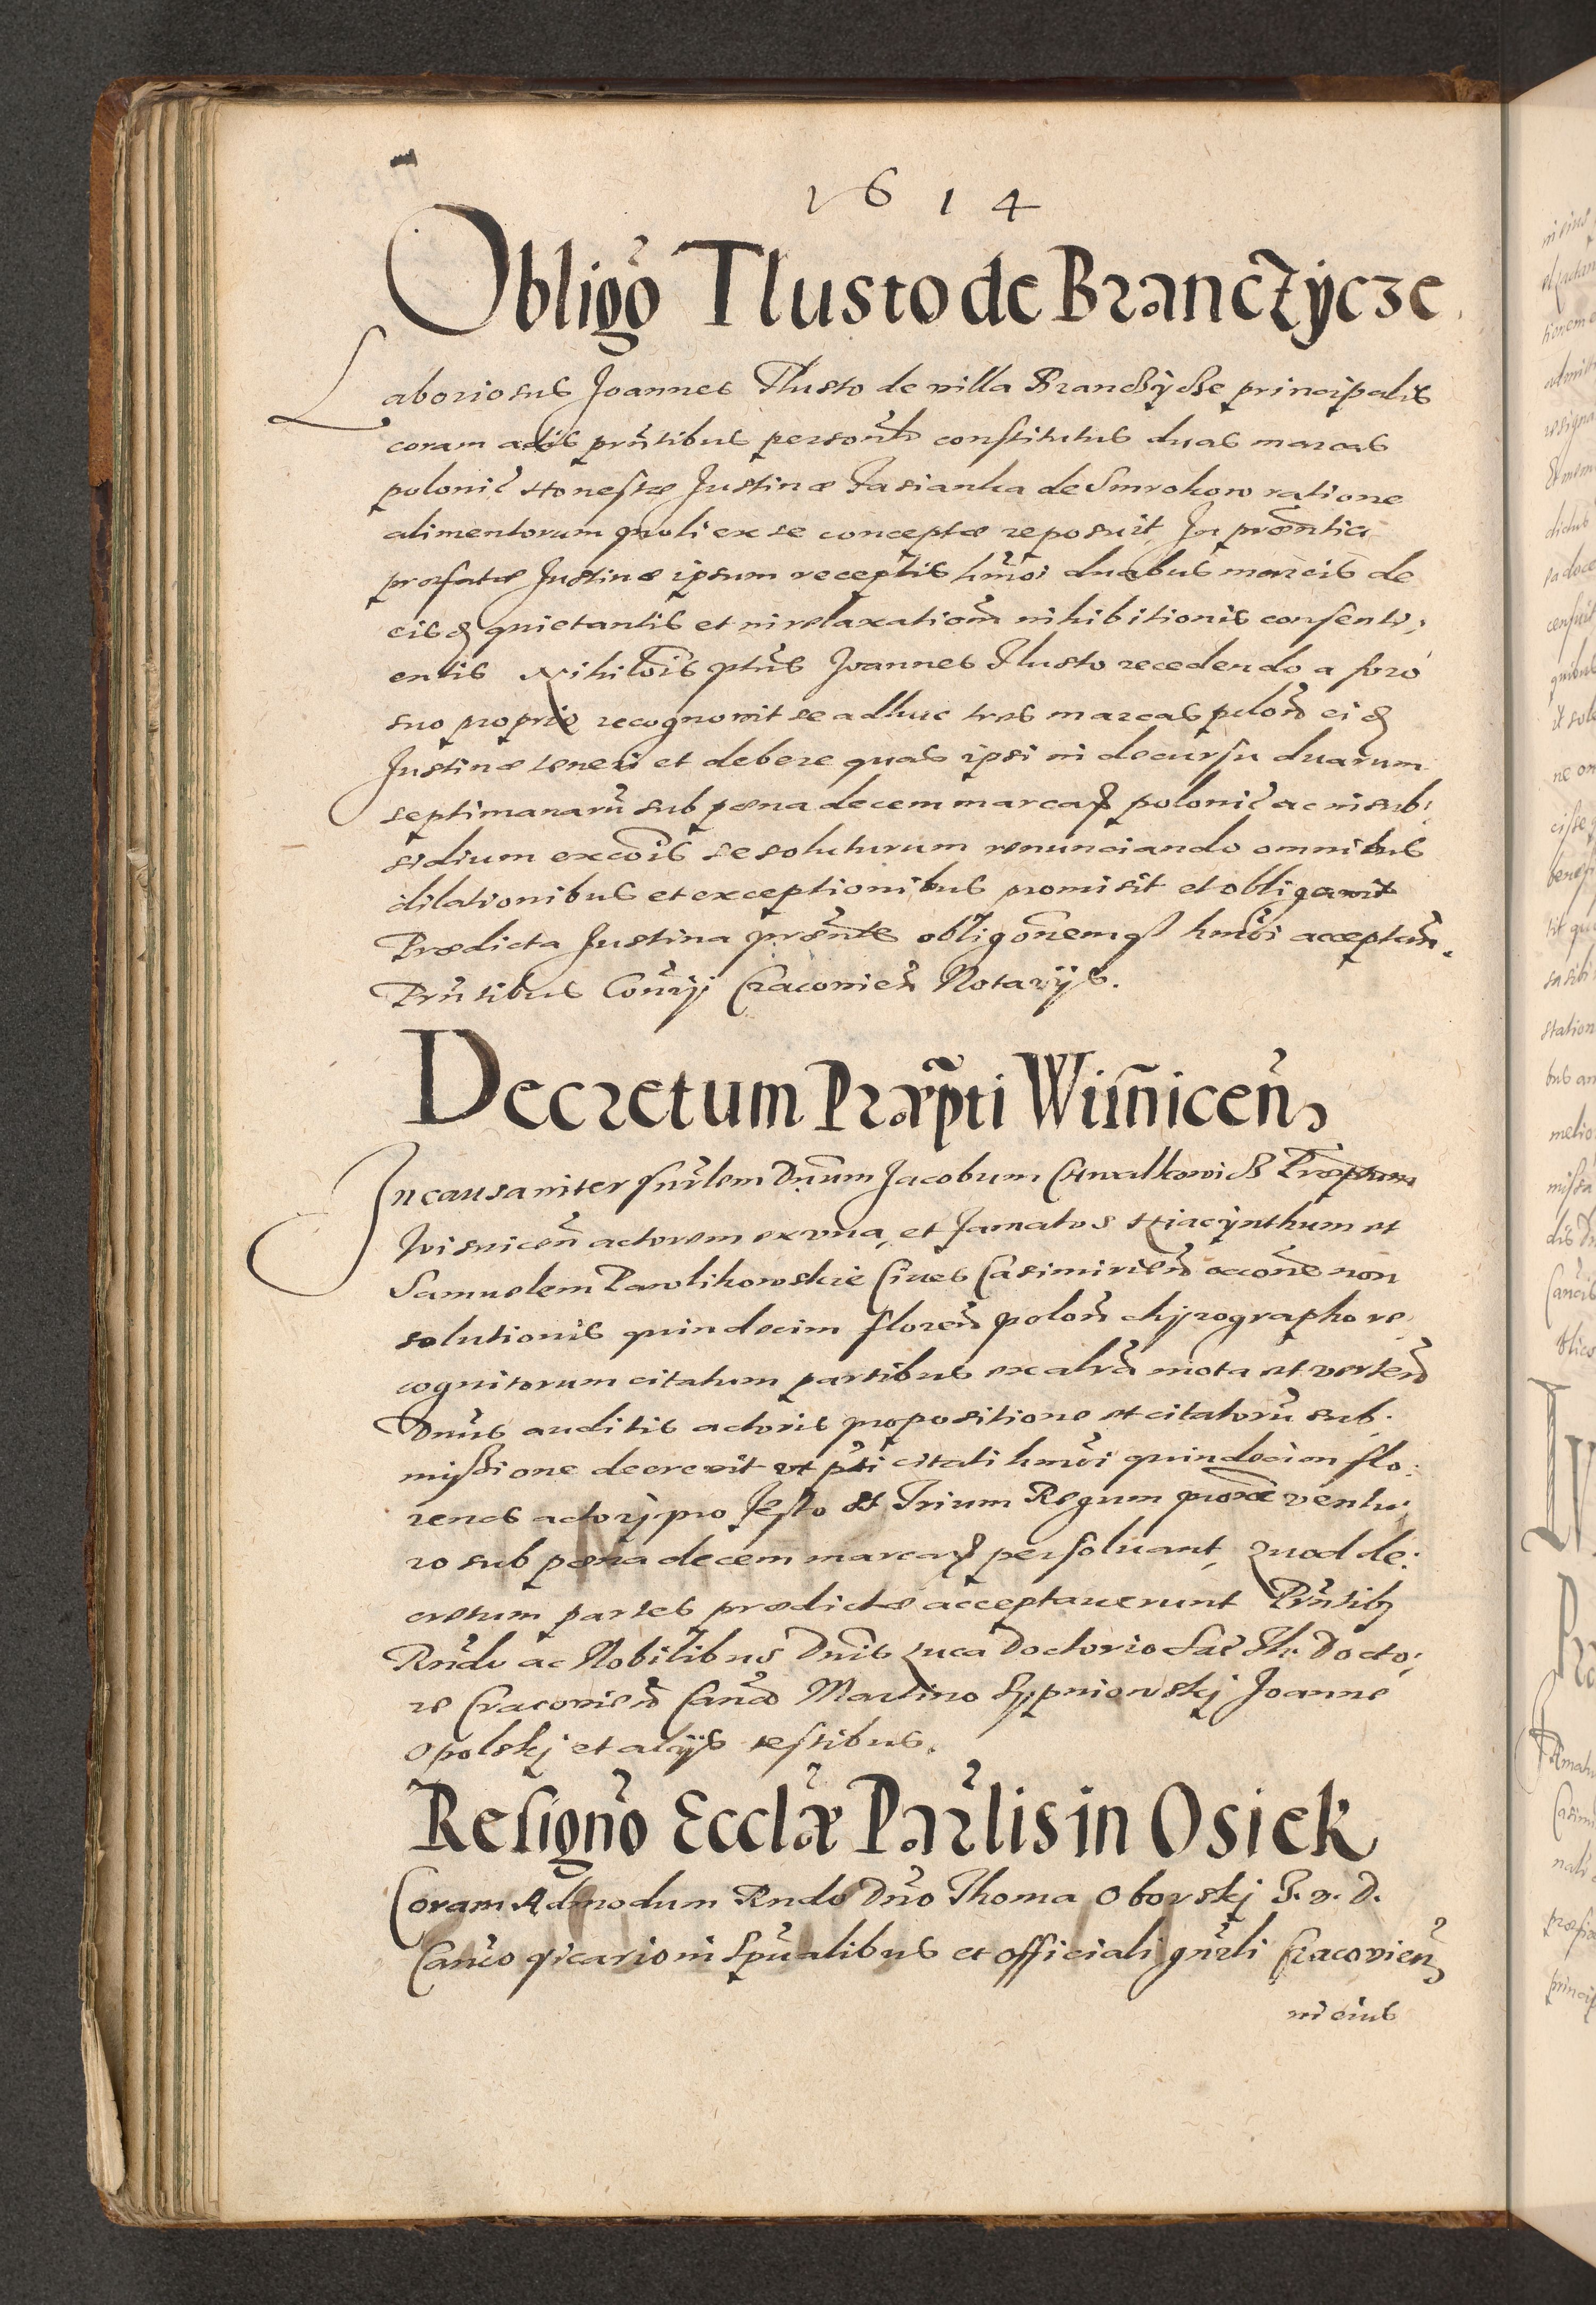 1614
Obligo Tlusto de Branczÿcze
Laboriosus Joannes Tlusto de villa Branczÿcze principalis
coram actis pntibus personlr constitutus duas marcas
polonic Honestæ Justinæ Jasianka de Smrokow ratione
alimentorum proli ex se conceptæ reposuit, In præntia
præfatæ Justinæ ipsum receptis hmoi duabus marcis de
eisd quietantis et in relaxationem inhibitionis consenti:
entis Nihilois ptus Joannes Tlusto recedendo a foro
suo proprio recognovit se adhuc tres marcas polon eid
Justinæ teneri et debere quas ipsi in decursu duarum
septimanaru sub pœna decem marcar polonic ac in sub:
sidium excois se soluturum renunciando omnibus
dilationibus et exceptionibus promisit et obligavit
Prædicta Justina prænte obligonemq hmoi acceptan.
Pntibus Conrij Cracovien Notarijs.
Decretum Præpti Wisnicen
In causa inter Venlem Dnum Jacobum Chwalkowicz Præptum
Wisnicen actorem ex vna, et famatos Hiacynthum et
Samuelem Pawlikowskie Ciues Casimirien occone non
solutionis quindecim floren polon chyrographo re
cognitorum citatum partibus ex altra mota et verten
Dnus auditis actoris propositione et citatoru sub:
missione decrevit vt pti citati hmoi quindecim flo:
renos actorj pro festo SS Trium Regum proxe ventu:
ro sub pœna decem marcar persoluant, Quod de:
cretum partes prædictæ acceptauerunt Pntib
Rndo ac Nobilibus Dnis Luca Doctorio Sac Th: Docto:
re Cracovien Canco Martino Sypniowskj Joanne
Opolskj et alijs testibus.
Resigno Ecclæ Parlis in Osiek
Coram Admodum Rndo Dno Thoma Oborskj J. v. D.
Canco Vicario in Spualibus et officiali gnrli Cracovien
in eius